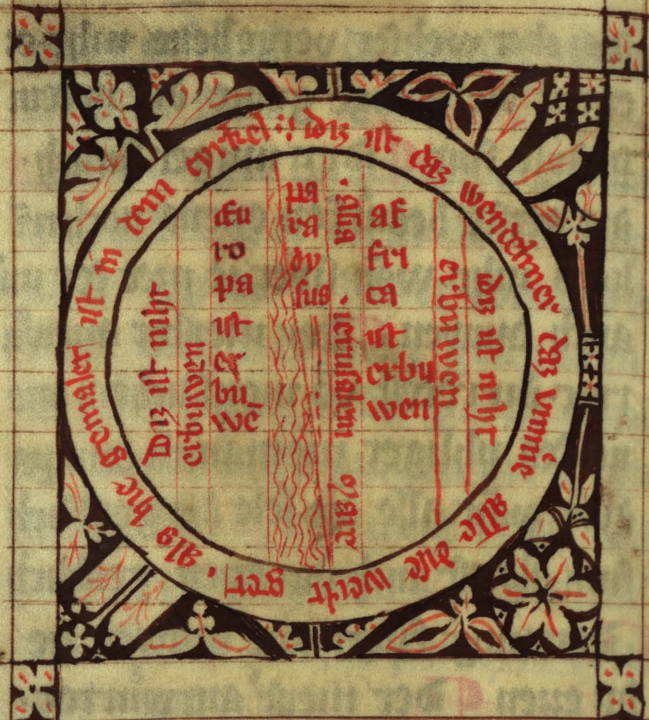 diz ist daz wendelmer daz vmme alle dise werlt get . als hie gemalet ist in dem cyrkel
Diz ist niht
erbuwen
Eu
ro
pa
ist
er
bu
wē
pa
ra
dy
sus
. Asia . ierusalem
af
fri
ca
ist
erbu
wen
diz ist niht
erbuwen